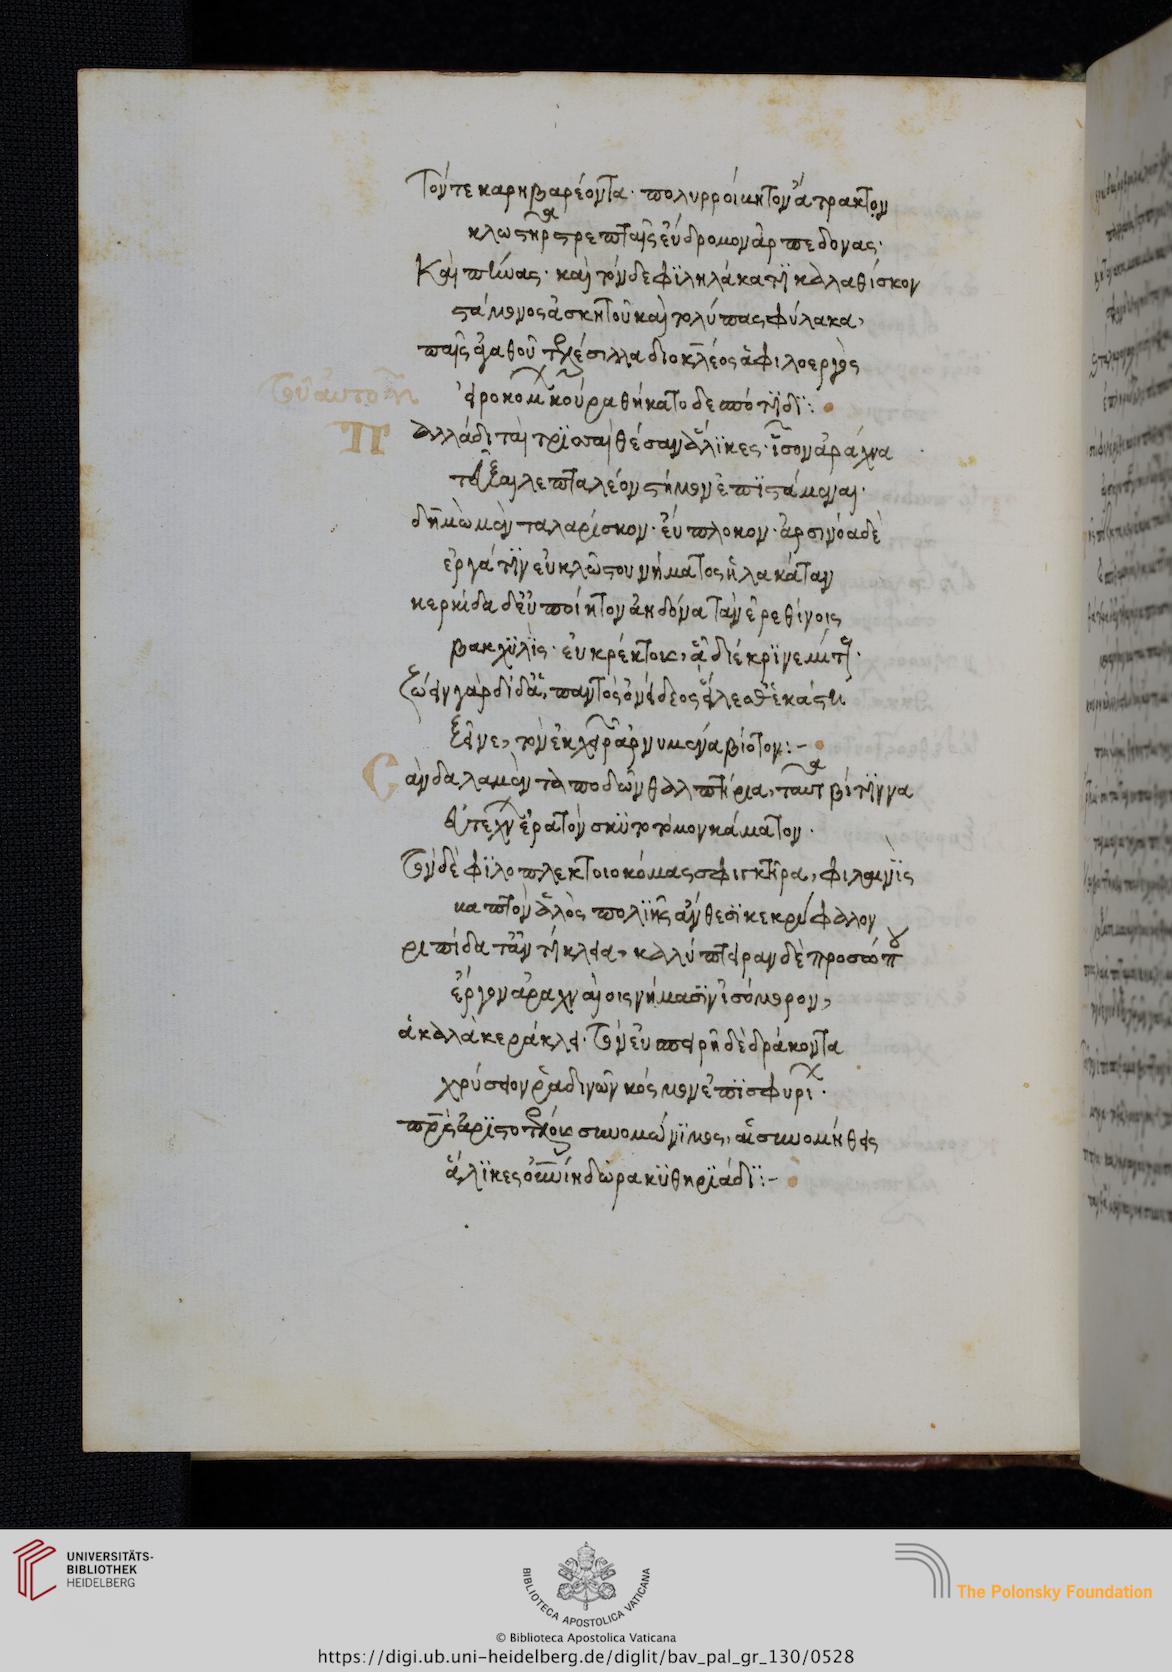 Τόν τε καρηβαρέοντα· πολυρροίκητον ἄτρακτον
κλωστῆρα στρεπταῖς εὔδρομον ἁρπεδόνας·
Καὶ πήνας· καὶ τόνδε φιληλάκατϊ καλαθίσκον
στάμονος ἀσκητοῦ καὶ τολύπας φύλακα,
παῖς ἀγαθοῦ τελέσιλλα διοκλέος ἁ φιλοεργὸς
εἰροκόμω κούρα θήκατο δεσπότϊδϊ:
Τοῦ αὐτοῦ
Παλλάδι ταὶ τρϊσσαὶ θέσαν ἅλϊκες· ἶσον ἀράχνα
τεῦξαι λεπταλέον στήμον' ἐπϊστάμεναι·
δημὼ μὲν ταλαρίσκον· εὔπλοκον· ἀρσινόα δὲ
ἐργάτϊν εὐκλώστου νήματος ἠλακάταν
κερκίδα δ' εὐποίητον ἀηδόνα τὰν ἐν ἐρίθοις
βακχϋλὶς· εὐκρέκτους, ἇ διέκρϊνε μίτους·
ζώειν γὰρ δίχα παντὸς ὀνείδεος ἤθελ' ἑκάστα
ξεῖνε, τὸν ἐκ χειρῶν ἀρνυμένα βίοτον:-
Σάνδαλα μὲν τὰ ποδῶν θαλπτήρια, ταῦτα βίτϊννα
εὐτέχνων ἐρατὸν σκϋτοτόμων κάματον·
Τὸν δὲ φϊλοπλέκτοιο κόμας σφιγκτῆρα, φιλαινὶς
βαπτὸν ἁλὸς πολϊῆς ἄνθεσϊ κεκρύφαλον
ῥιπίδα δ' ἀντίκλεια, καλύπτειραν δὲ προσώπου
ἔργον ἀραχναίοις νήμασϊν ἰσόμορον,
ἁ καλὰ κ' ἡράκλεια· Τὸν εὐσπειρῆ δὲ δράκοντα
χρύσειον ῥαδινῶν κόσμον ἐπϊσφυρίων·
πατρὸς ἀρϊστοτέλους συνομώνϊμος, αἱ συνομήθεις
ἅλϊκες οὐρανίη δῶρα κϋθηρϊάδϊ:-
UNIVERSITÄTS-
BIBLIOTHEK
HEIDELBERG
BIBLIOTECA APOSTOLICA VATICANA
© Biblioteca Apostolica Vaticana
The Polonsky Foundation
https://digi.ub.uni-heidelberg.de/diglit/bav_pal_gr_130/0528